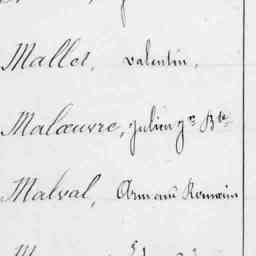 Mallet, Valentin,
Malœuvre, Julien Jn Bte
Malval, Armand Romain